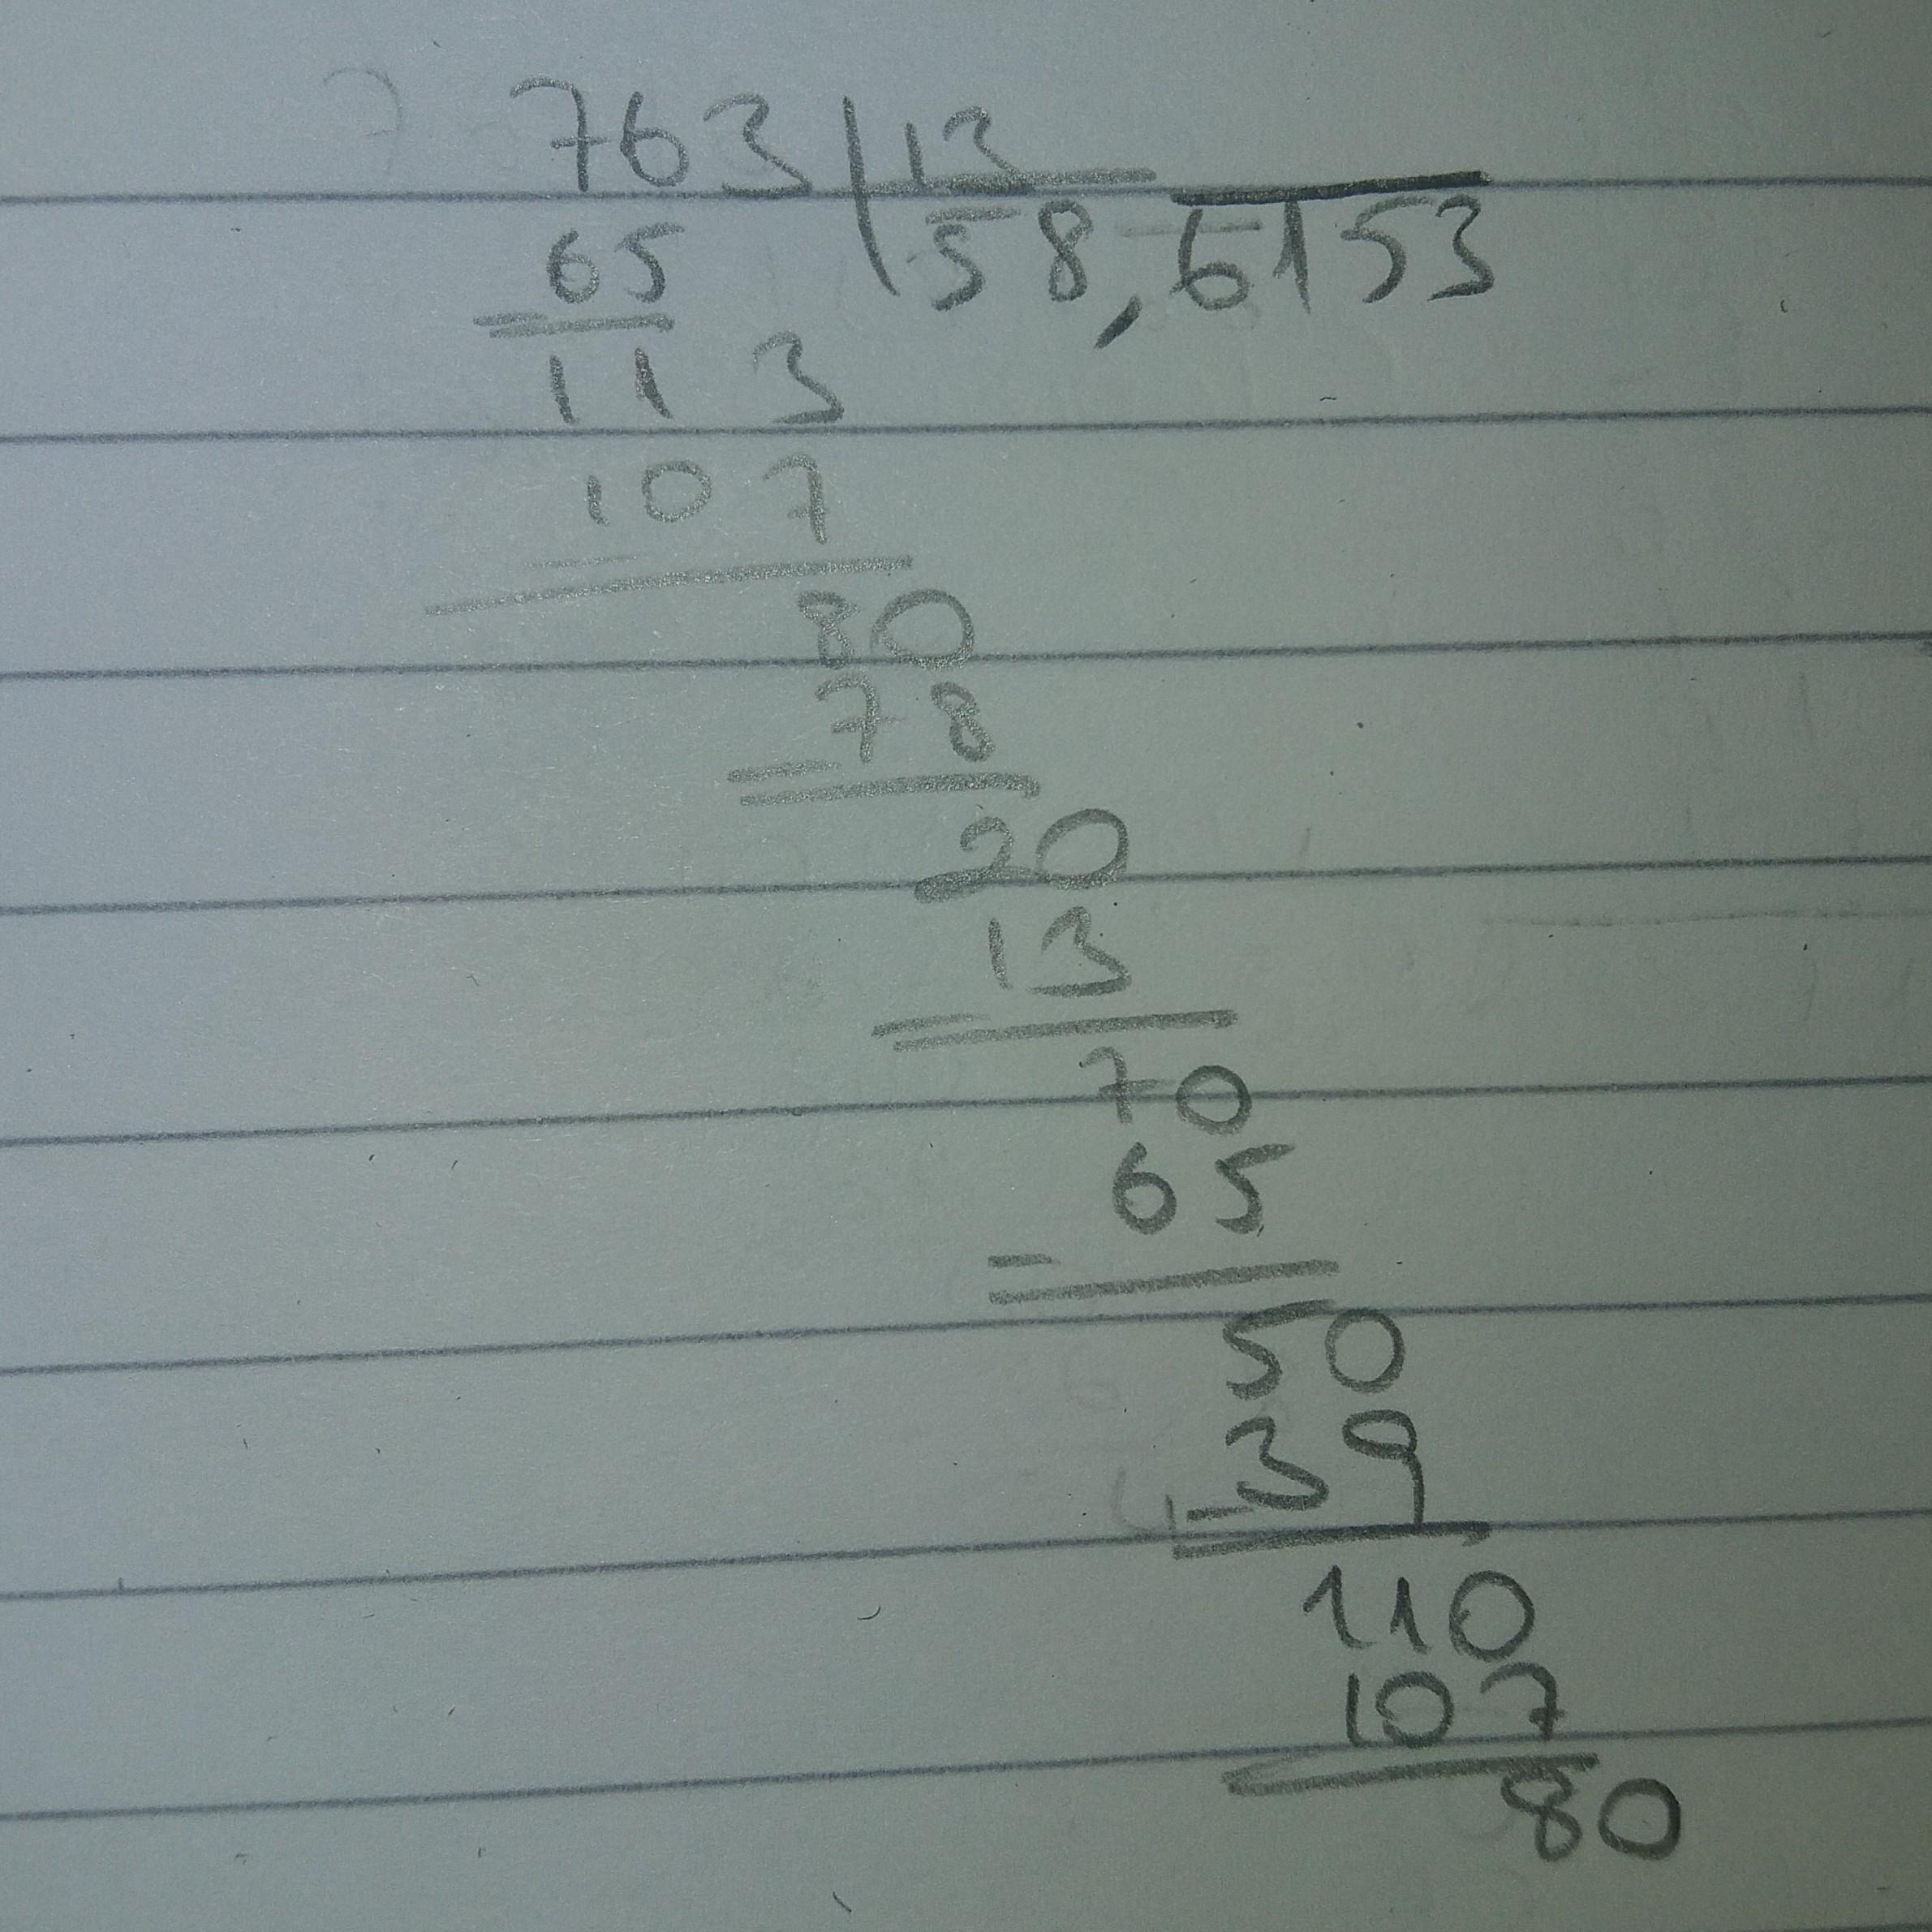 763 13
65 58,6153
113
107
80
78
20
13
70
65
50
39
110
107
80